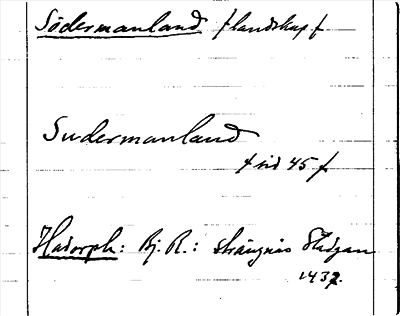 Södermanland /landskap/
Sudermanland
/sid 45/
Hadorph: Bj. R.: strängnäs Stadgan
1437.